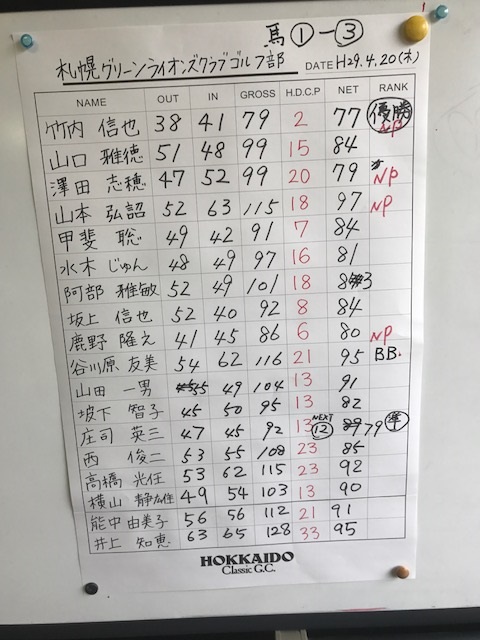 馬①-③
札幌グリーンライオンズクラブゴルフ部 DATE H29.4.20(木)
NAME OUT IN GROSS H.D.C.P NET RANK
竹内 信也 38 41 79 2 77 優勝 NP
山口 雅徳 51 48 99 15 84
澤田 志穂 47 52 99 20 79 NP
山本 弘詔 52 63 115 18 97 NP
甲斐 聡 49 42 91 7 84
水木 じゅん 48 49 97 16 81
阿部 雅敏 52 49 101 18 83
坂上 信也 52 40 92 8 84
鹿野 隆之 41 45 86 6 80 NP
谷川原 友美 54 62 116 21 95 BB.
山田 一男 55 49 104 13 91
坂下 智子 45 50 95 13 82
庄司 英三 47 45 92 13 NEXT ⑫ 79 準
西 俊二 53 55 108 23 85
高橋 光任 53 62 115 23 92
横山 静 49 54 103 13 90
能中 由美子 56 56 112 21 91
井上 知恵 63 65 128 33 95
HOKKAIDO
Classic G.C.